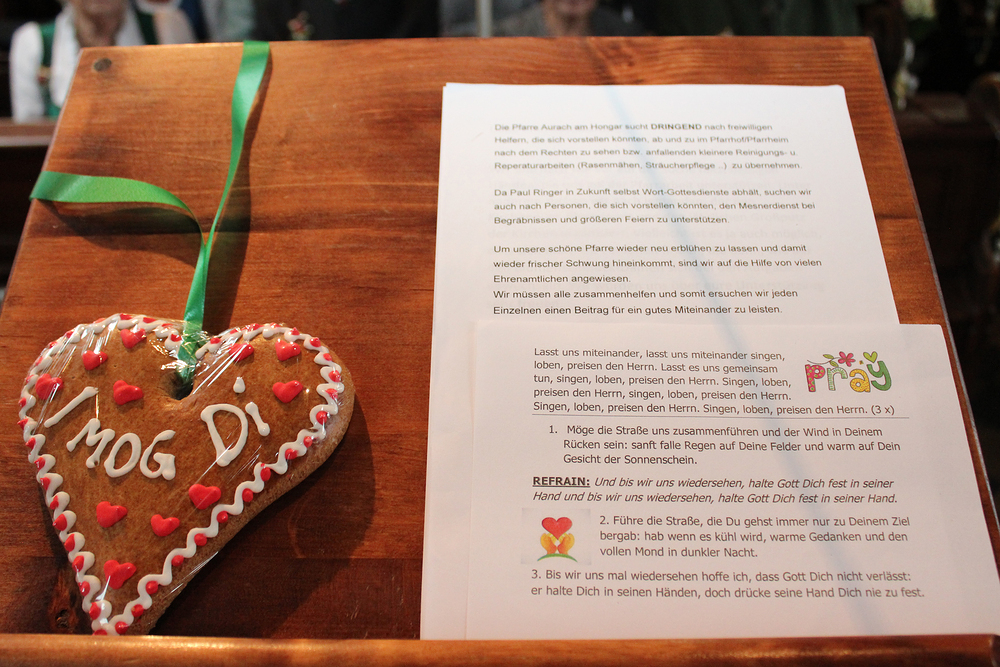 I MOG Di
Die Pfarre Aurach am Hongar sucht DRINGEND nach freiwilligen
Helfern, die sich vorstellen könnten, ab und zu im Pfarrhof/Pfarrheim
nach dem Rechten zu sehen bzw. anfallenden kleinere Reinigungs- u.
Reperaturarbeiten (Rasenmähen, Sträucherpflege ..) zu übernehmen.
Da Paul Ringer in Zukunft selbst Wort-Gottesdienste abhält, suchen wir
auch nach Personen, die sich vorstellen könnten, den Mesnerdienst bei
Begräbnissen und größeren Feiern zu unterstützen.
Um unsere schöne Pfarre wieder neu erblühen zu lassen und damit
wieder frischer Schwung hineinkommt, sind wir auf die Hilfe von vielen
Ehrenamtlichen angewiesen.
Wir müssen alle zusammenhelfen und somit ersuchen wir jeden
Einzelnen einen Beitrag für ein gutes Miteinander zu leisten.
Lasst uns miteinander, lasst uns miteinander singen,
loben, preisen den Herrn. Lasst es uns gemeinsam
tun, singen, loben, preisen den Herrn. Singen, loben,
preisen den Herrn, singen, loben, preisen den Herrn.
Singen, loben, preisen den Herrn. Singen, loben, preisen den Herrn. (3 x)
pray
1. Möge die Straße uns zusammenführen und der Wind in Deinem
Rücken sein: sanft falle Regen auf Deine Felder und warm auf Dein
Gesicht der Sonnenschein.
REFRAIN: Und bis wir uns wiedersehen, halte Gott Dich fest in seiner
Hand und bis wir uns wiedersehen, halte Gott Dich fest in seiner Hand.
2. Führe die Straße, die Du gehst immer nur zu Deinem Ziel
bergab: hab wenn es kühl wird, warme Gedanken und den
vollen Mond in dunkler Nacht.
3. Bis wir uns mal wiedersehen hoffe ich, dass Gott Dich nicht verlässt:
er halte Dich in seinen Händen, doch drücke seine Hand Dich nie zu fest.